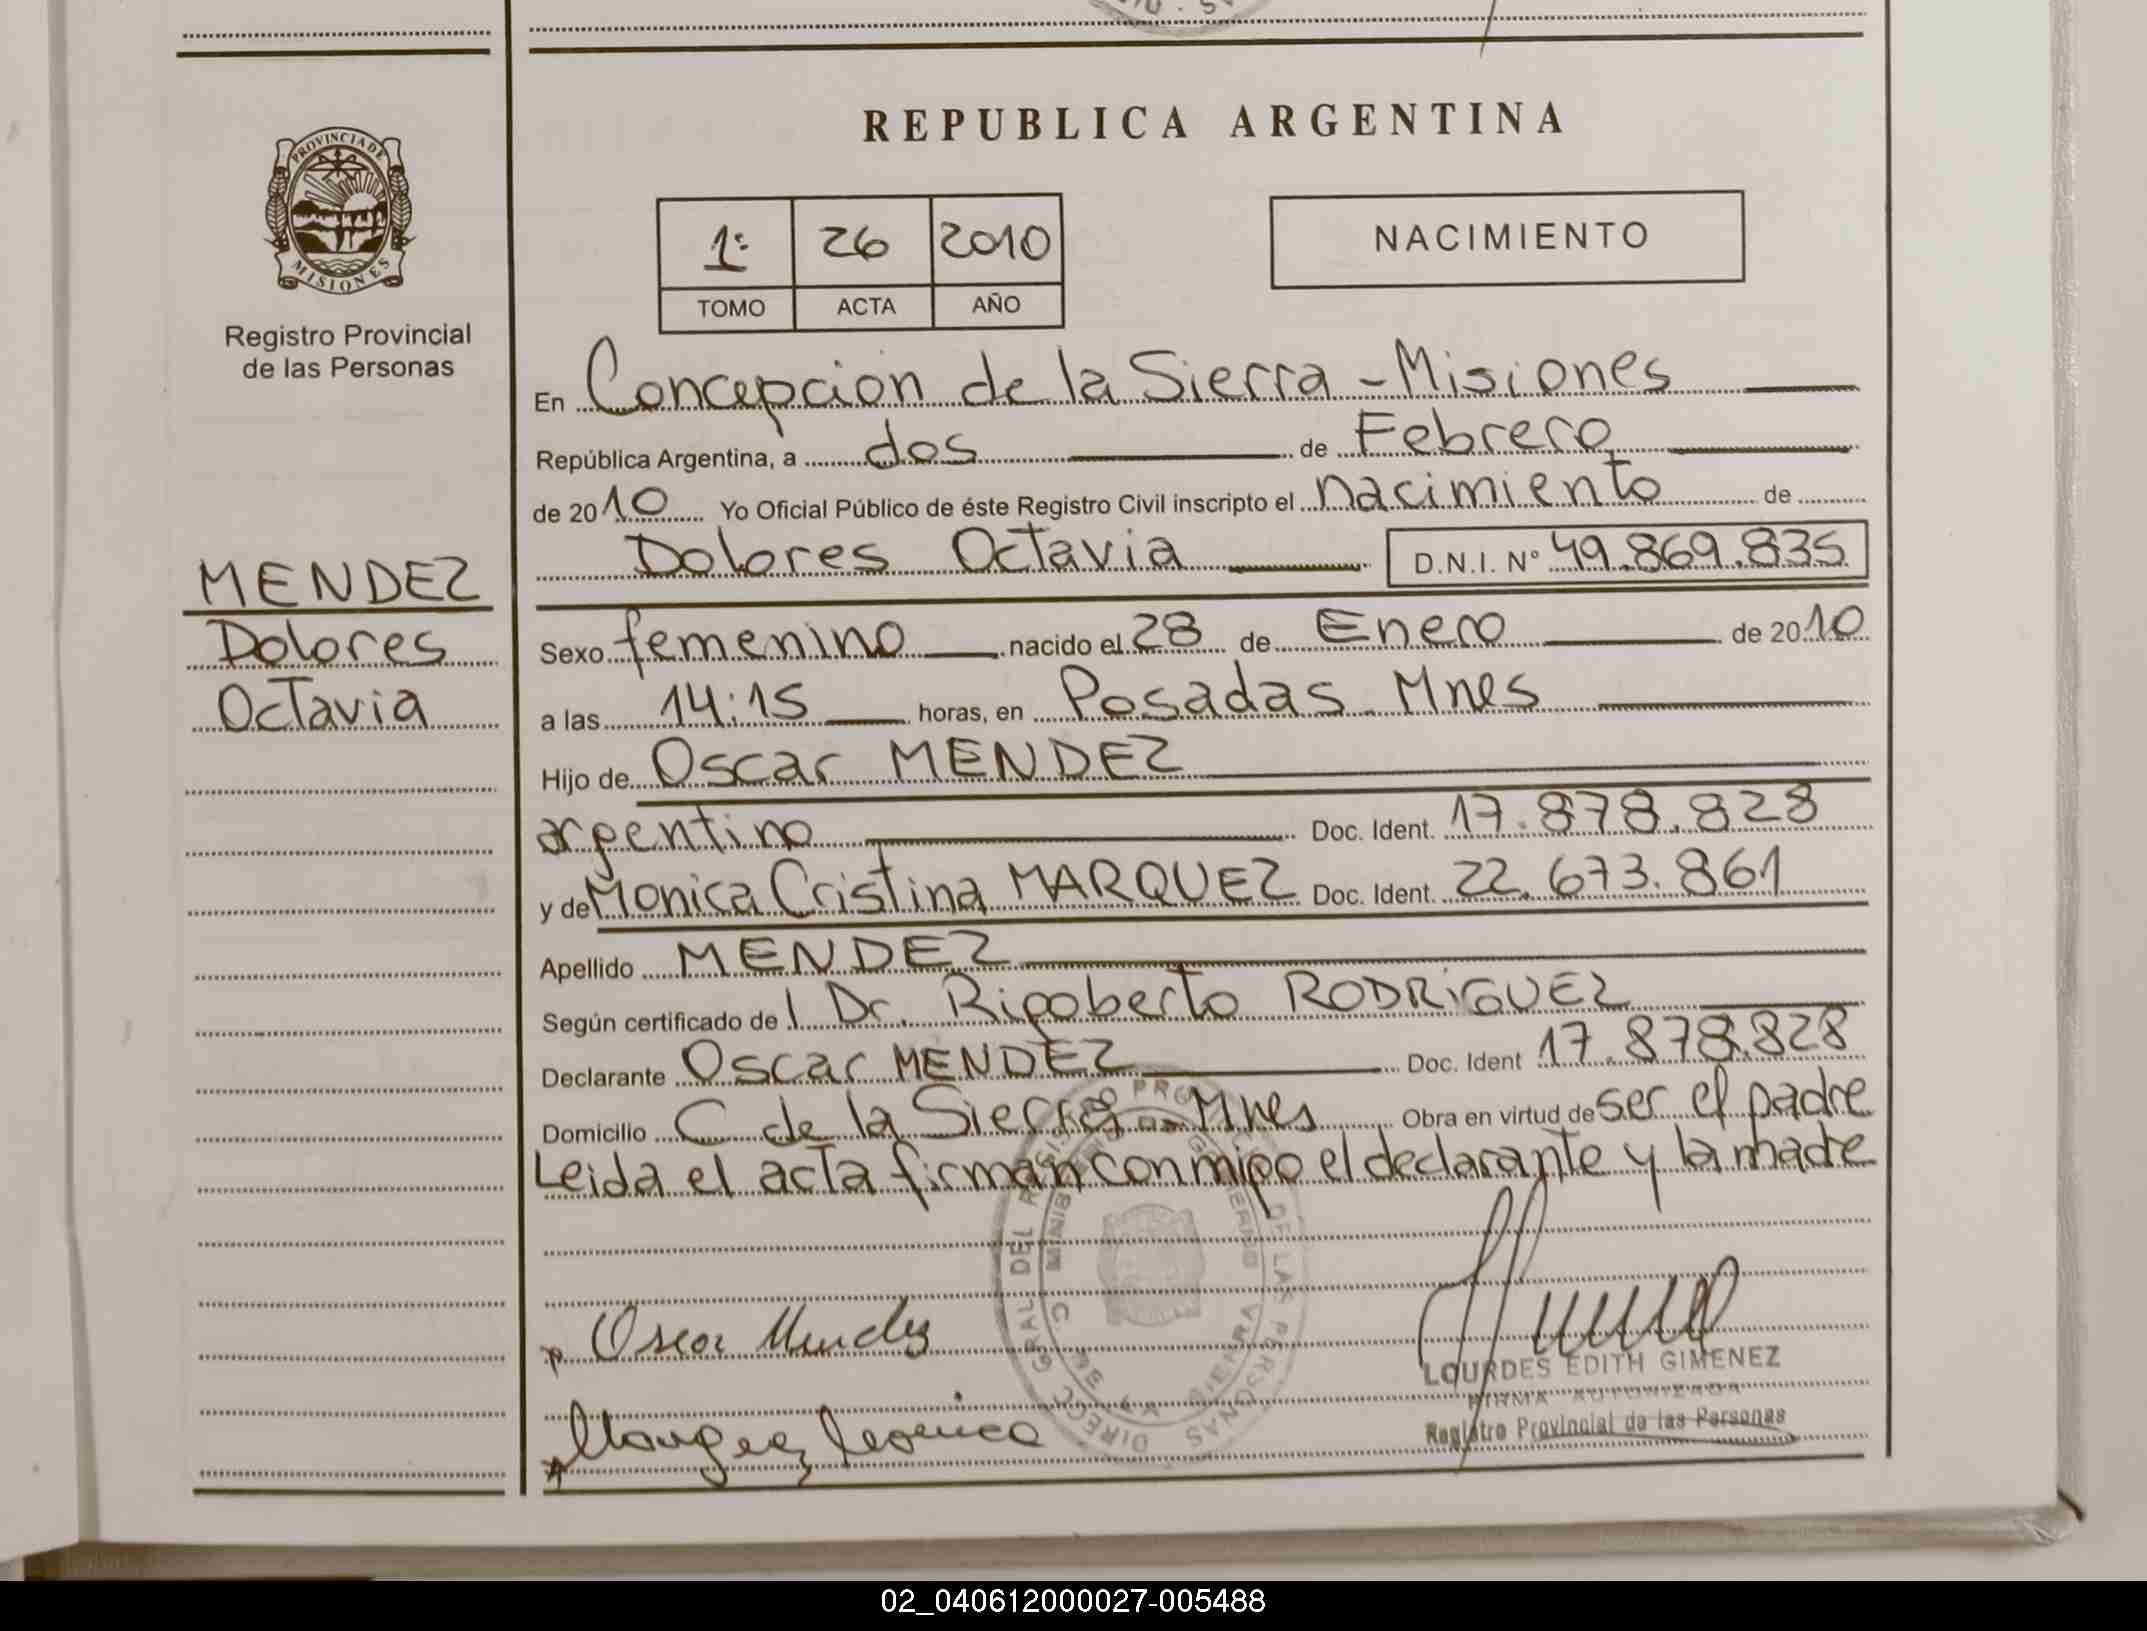 PROVINCIA DE
MISIONES
Registro Provincial
de las Personas
MENDEZ
Dolores
Octavia
REPUBLICA ARGENTINA
1º 26 2010
TOMO ACTA AÑO
NACIMIENTO
En Concepcion de la Sierra - Misiones
República Argentina, a dos de Febrero
de 2010 Yo Oficial Público de éste Registro Civil inscripto el nacimiento de
Dolores Octavia D.N.I. Nº 49.869.835
Sexo femenino nacido el 28 de Enero de 2010
a las 14:15 horas, en Posadas Mnes
Hijo de Oscar MENDEZ
argentino Doc. Ident. 17.878.828
y de Monica Cristina MARQUEZ Doc. Ident. 22.673.861
Apellido MENDEZ
Según certificado de l Dr. Rigoberto RODRIGUEZ
Declarante Oscar MENDEZ Doc. Ident 17.878.828
Domicilio C de la Sierra - Mnes Obra en virtud de ser el padre
Leida el acta firman conmigo el declarante y la madre
Oscar Mendez
LOURDES EDITH GIMENEZ
FIRMA AUTORIZADA
Registro Provincial de las Personas
Marquez Monica
02_040612000027-005488